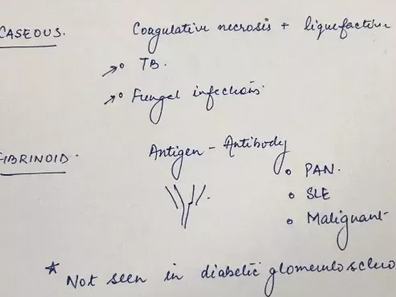 CASEOUS. Coagulative necrosis + liquefactive
TB.
Fungal infections.
FIBRINOID. Antigen - Antibody
PAN.
SLE
Malignant
* Not seen in diabetic glomerulosclero